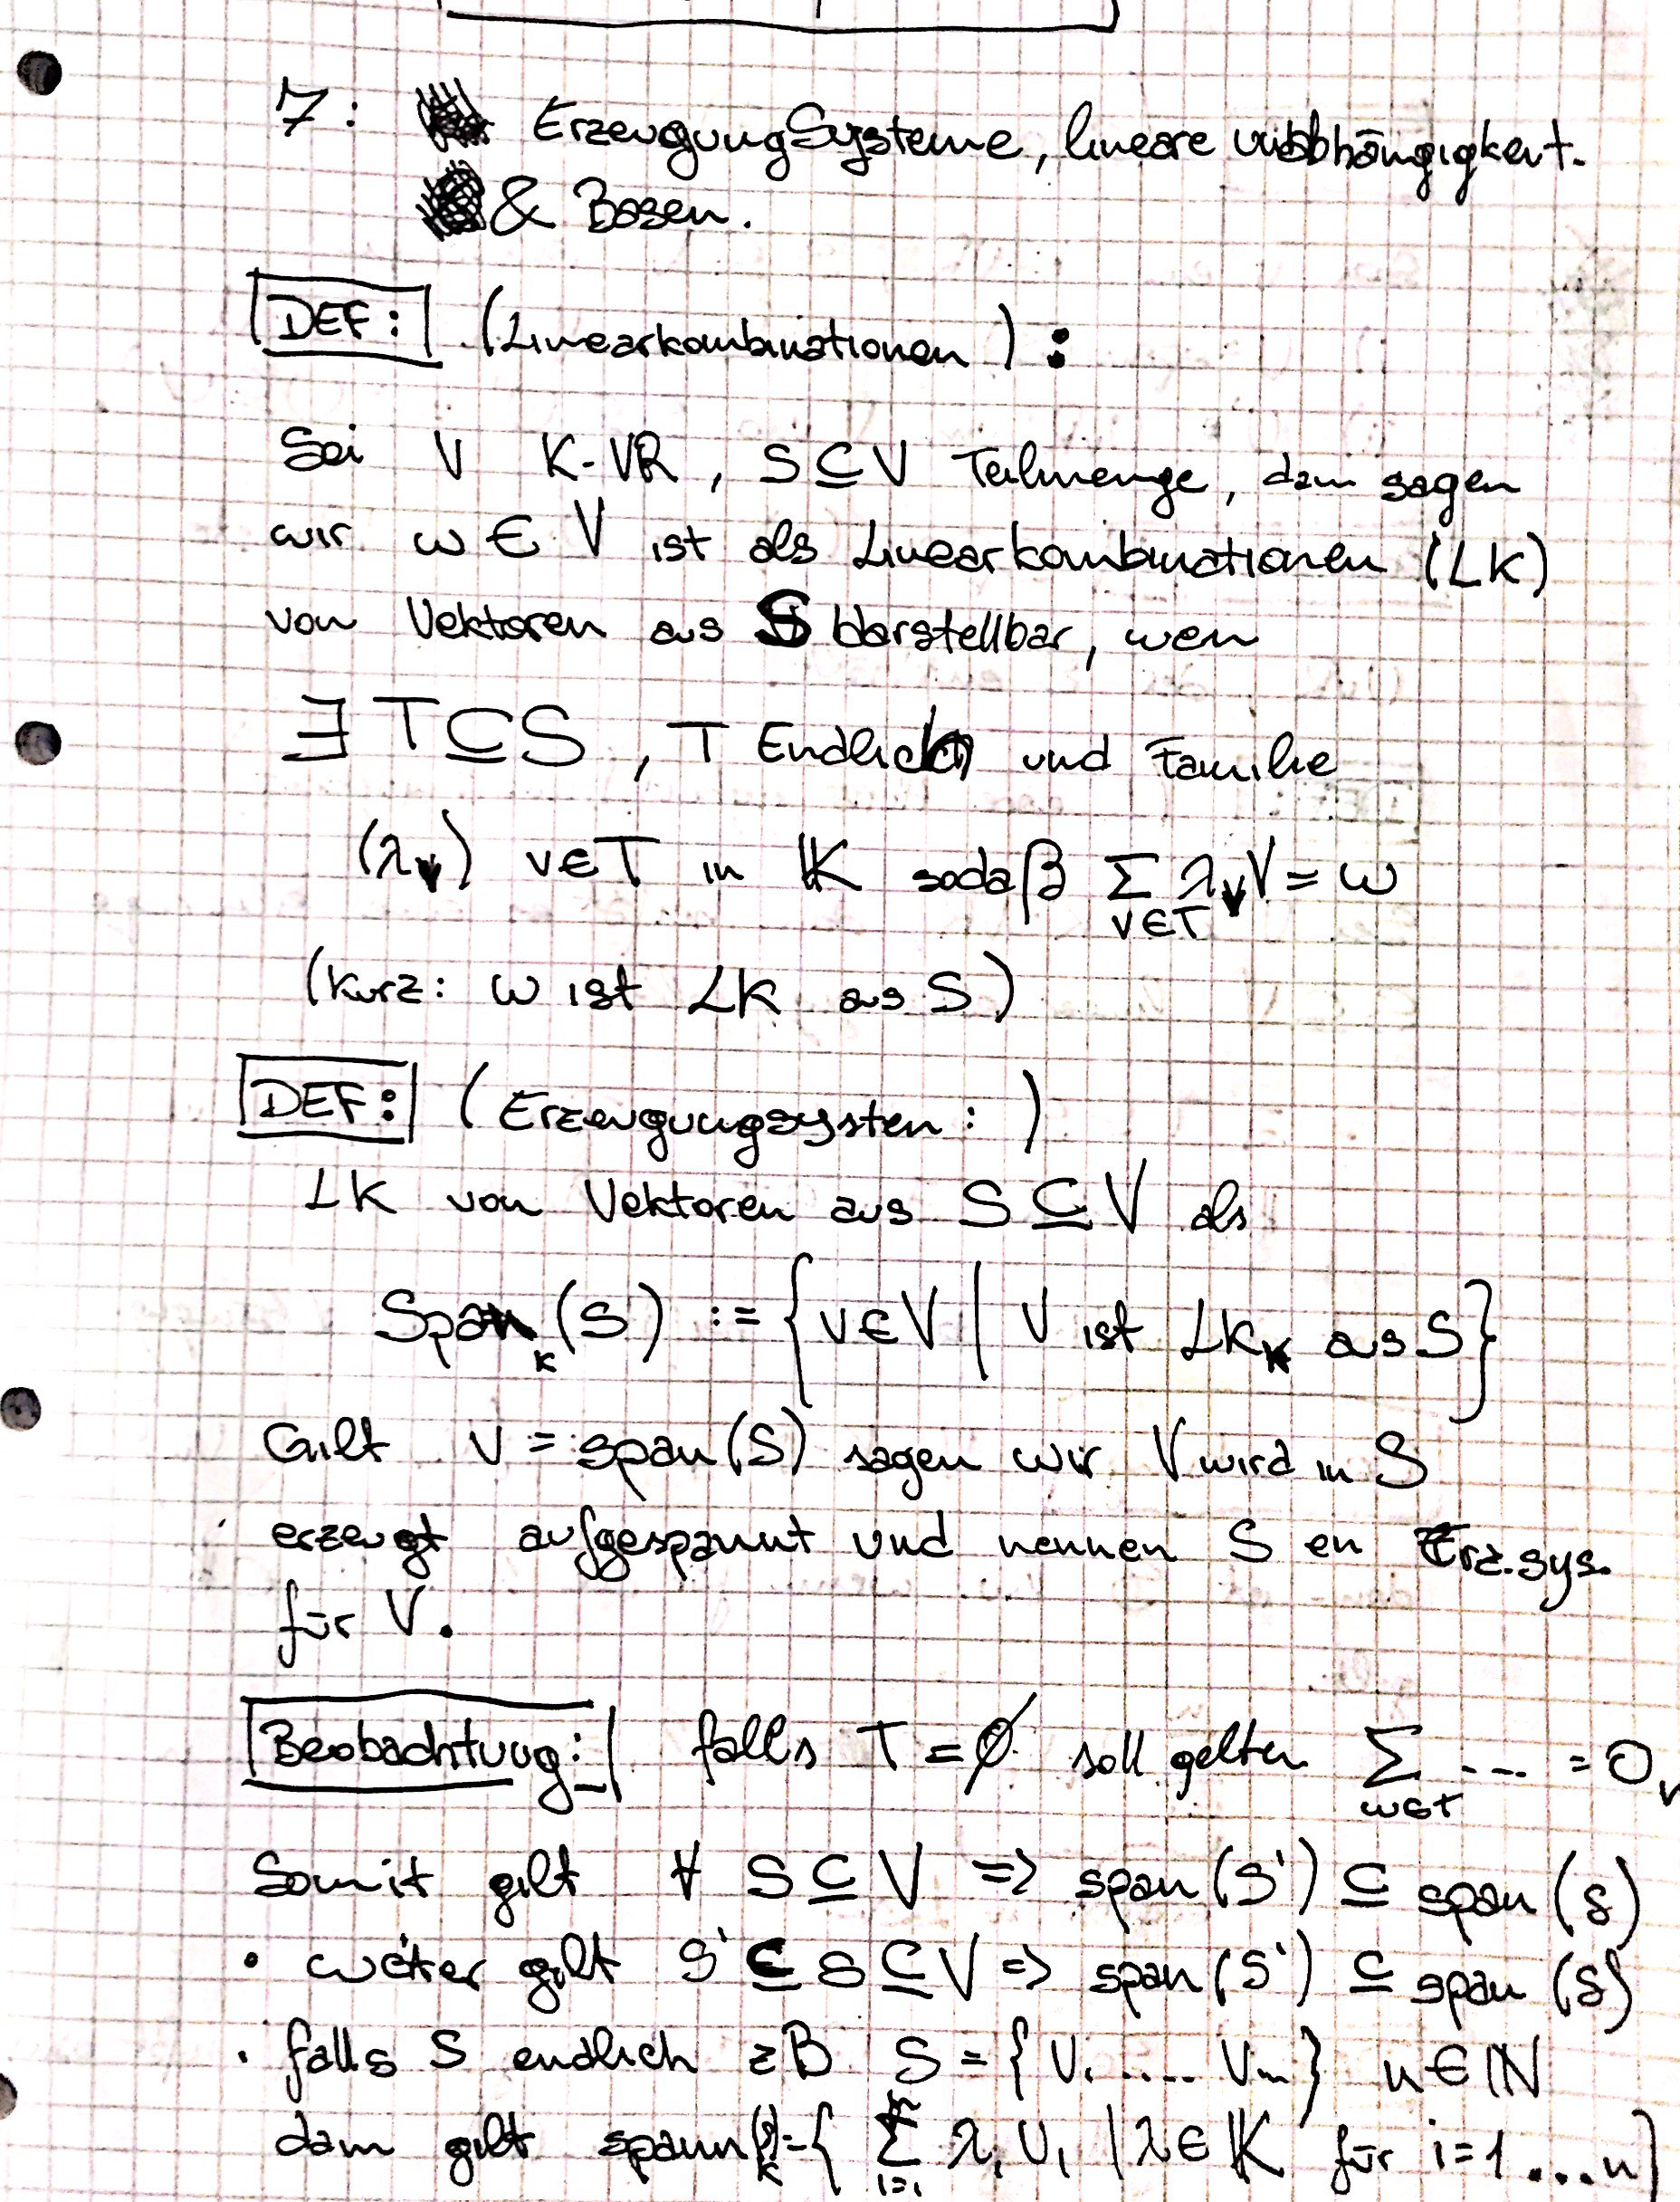 7: Erzeugungsysteme, lineare unabhängigkeit.
& Basen.
DEF: (Linearkombinationen):
Sei V K-VR, S⊆V Teilmenge, dann sagen
wir w ∈ V ist als Linearkombinationen (LK)
von Vektoren aus S darstellbar, wen
∃ T⊆S, T Endlich und Familie
(λᵥ) v∈T in 𝕂 sodaß Σ_{v∈T} λᵥV = w
(kurz: w ist LK aus S)
DEF: (Erzeugungsysten:)
LK von Vektoren aus S⊆V als
Span_K (S) := {v∈V | v ist LK_K aus S}
Gilt V = span(S) sagen wir V wird in S
erzeugt aufgespannt und nennen S en Erz.sys.
für V.
Beobachtung: falls T = ∅ soll gelten Σ_{w∈T} --- = 0_V
Somit gilt ∀ S⊆V => span(S') ⊆ span(S)
• weiter gilt S'⊆S⊆V => span(S') ⊆ span(S)
• falls S endlich zB S = {V₁ .... Vₙ} n∈ℕ
dann gilt spann_K = { Σ_{i=1} λᵢ Vᵢ | λ∈𝕂 für i=1...n}